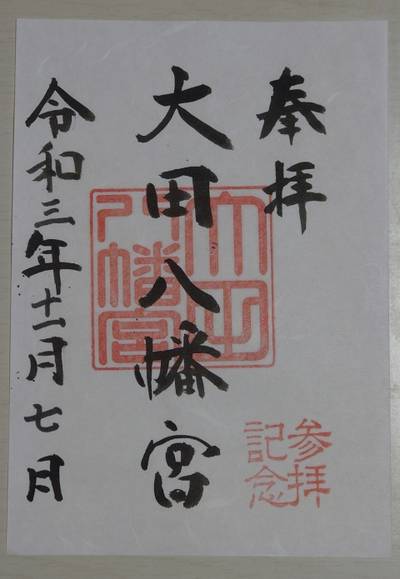 奉拝
大田八幡宮
令和三年十一月七日
大田八幡宮
参拝
記念